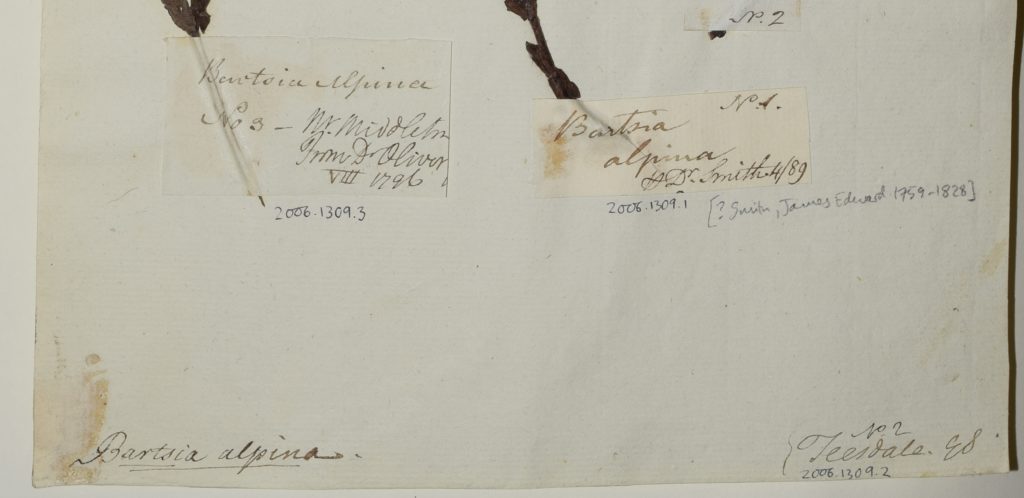 No. 2
Bartsia Alpina
No 3 - Mr. Middleton
From Dr Oliver
VIII 1796
2006.1309.3
No. 1.
Bartsia
alpina
Dr. Smith 4/89
2006.1309.1 [? Smith, James Edward 1759-1828]
Bartsia alpina.
No 2
Teesdale. 98
2006.1309.2